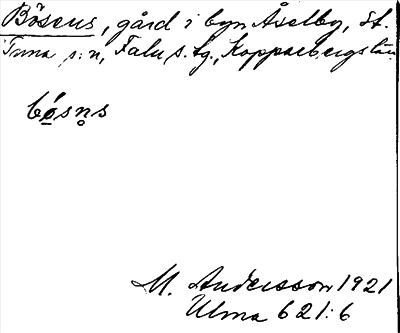 Bösens, gård i byn Åselby, St.
Tuna s:n, Falu s. tg., Kopparbergs län
bó̲sn̥s
M. Andersson 1921
Ulma 621:6